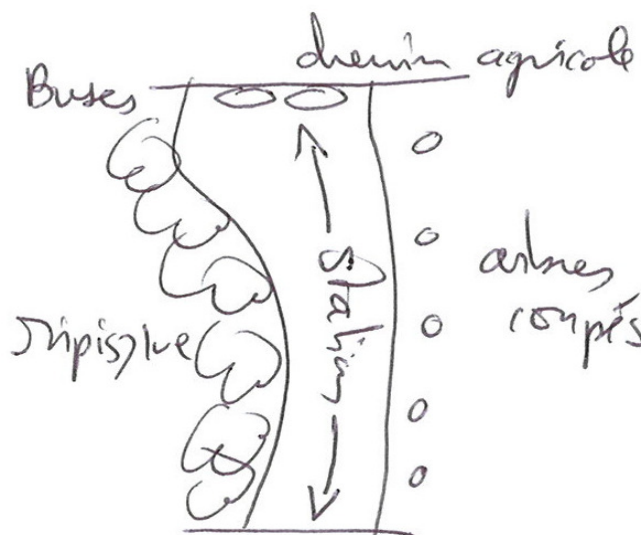 chemin agricole
Buses
Station
arbres
coupés
ripisylve